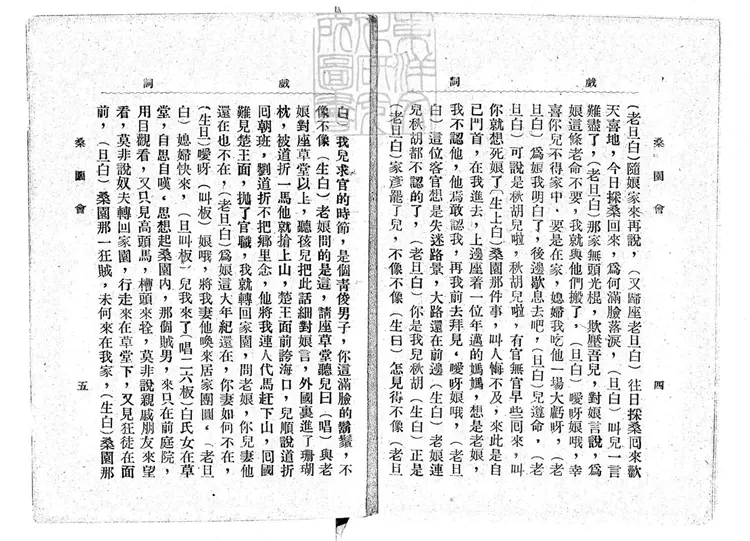 戲
詞
桑園會
四
(老旦白)隨娘家來再說，(又歸座老旦白)往日採桑囘來歡
天喜地，今日採桑回來，爲何滿臉落淚，(旦白)叫兒一言
難盡了，(老旦白)那家無頭光棍，欺壓吾兒，對娘言說，爲
娘這條老命不要，我就與他們搬了，(旦白)噯呀娘哦，幸
喜你兒不得家中，要是在家，媳婦我吃他一場大虧呀，(老
旦白)爲娘我明白了，後邊歇息去吧，(旦白)兒遵命，(老
旦白)可說是秋胡兒啦，秋胡兒啦，有官無官早些囘來，叫
你就想死娘了(生上白)桑園那件事，叫人悔不及，來此是自
已門首，在我進去，上邊座着一位年邁的媽媽，想是老娘，
我不認他，他焉敢認我，再我前去拜見，噯呀娘哦，(老旦
白)這位客官想是失迷路景，大路還在前邊(生白)老娘連
兒秋胡都不認的了，(老旦白)你是我兒秋胡(生白)正是
(老旦白)家彥罷了兒，不像不像(生白)怎見得不像(老旦
戲
詞
桑園會
五
白)我兒求官的時節，是個青後男子，你這滿臉的鬍鬚，不
像不像(生白)老娘問的是這，請座草堂聽兒曰(唱)與老
娘對座草堂以上，聽孩兒把此話細對娘言，外國裏進了珊瑚
枕，被道折一馬他就搶上山，楚王面前誇海口，兒順說道折
囘朝班，劉道折不把鄉里念，他將我連人代馬赶下山，囘國
難見楚王面，拋了官職，我就轉回家園，問老娘，你兒妻他
還在也不在，(老旦白)爲娘這大年紀還在，你妻如何不在，
(生旦)噯呀(叫板)娘哦，將我妻他喚來居家團圓，(老旦
白)媳婦快來，(旦叫板)兒我來了(唱二六板)白氏女在草
堂，自思自嘆，思想起桑園內，那個賊男，來只在前庭院，
用目觀看，又只見高頭馬，槽頭來拴，莫非說親戚朋友來望
看，莫非說奴夫轉回家園，行走來在草堂下，又見狂徒在面
前，(旦白)桑園那一狂賊，未何來在我家，(生白)桑園那